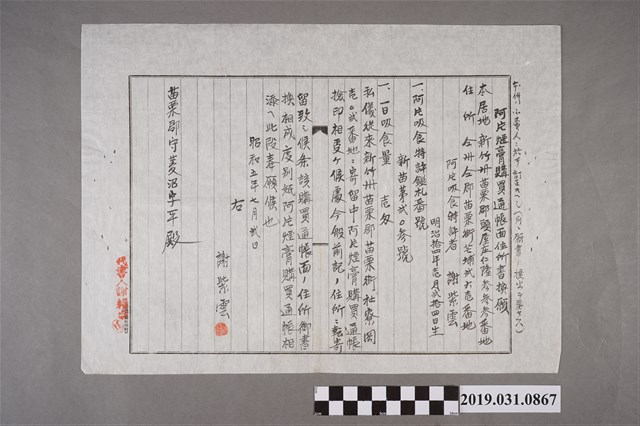 阿片煙膏購買通帳面住所書換願
本居地 新竹州苗栗郡頭屋庄仁隆参参参番地
住所 仝州仝郡苗栗街芒埔弐六壱番地
阿片吸食特許者 謝紫雲
明治拾四年壱月弐拾四日生
一、阿片吸食特許鑑札番號
新苗第弐〇参號
一、一日吸食量 壱匁
私儀従来新竹州苗栗郡苗栗街社寮岡
壱〇弐番地ニ寄留中阿片煙膏購買通帳
捺印相受ケ候處今般前記ノ住所ニ転寄
留致シ候条該購買通帳面ノ住所御書
換相成度別紙阿片煙膏購買通帳相
添ヘ此段奉願候也
昭和五年七月弐日
右 謝紫雲
苗栗郡守菱沼 平殿
2019.031.0867